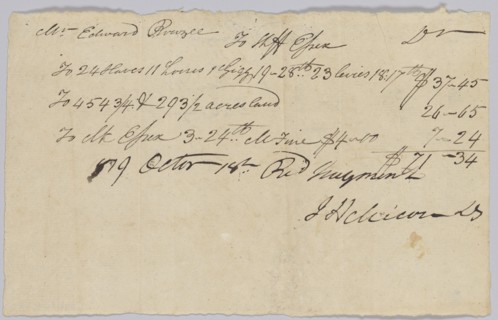 Mr Edward Rouzee
To Shff Essex Dr
To 24 Slaves 11 horses 1 Gigg 19-28th 23 levies 18:17th $37-45
To 454 3/4 & 293 1/2 acres land 26-65
To Mt Essex 3-24th M Fine $4-50 7-24
$71-34
1819 Octor 18th Recd payment
J H Micou DS